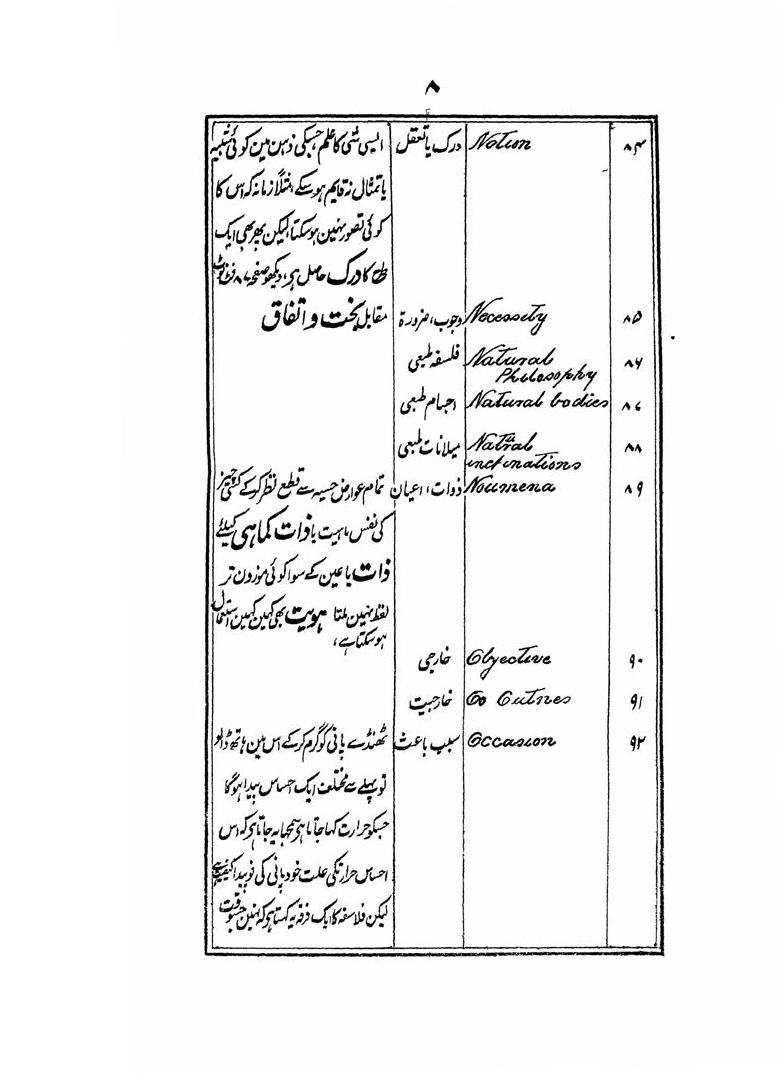 ۸
۸۴ Notion درک یا تعقل ایسی شی کا علم جسکی ذہن مین کوئی شبیہ
یا تمثال نہ قایم ہوسکے، مثلاً زمانہ کہ اس کا
کوئی تصور نہین ہوسکتا لیکن پھر بھی ایک
طرح کا درک حاصل ہی، دیکھو صفحہ فٹ نوٹ
۸۵ Necessity وجوب، ضرورۃ مقابل بخت و اتفاق
۸۶ Natural فلسفہ طبعی
Philosophy
۸۷ Natural bodies اجسام طبعی
۸۸ Natural میلانات طبعی
inclinations
۸۹ Noumena ذوات، اعیان تمام عوارض حسیہ سے قطع نظر کرکے کسی چیز
کی نفس ماہیت یا ذات کماہی کیلئے
ذات یا عین کے سوا کوئی موزون تر
لفظ نہین ملتا ہویت بھی کہین کہین استعمال
ہوسکتا ہے،
۹۰ Objective خارجی
۹۱ Outnes خارجیت
۹۲ Occasion سبب باعث ٹھنڈے پانی کو گرم کرکے اس مین ہاتھ ڈالو
تو پہلے سے مختلف ایک احساس پیدا ہوگا
جسکو حرارت کہا جاتا ہی سمجھا یہ جاتا ہی کہ اس
احساس حرارت کی علت خود پانی کی نوپیدا کیفیت ہے
لیکن فلاسفہ کا ایک فرقہ یہ کہتا ہی کہ نہین جسوقت